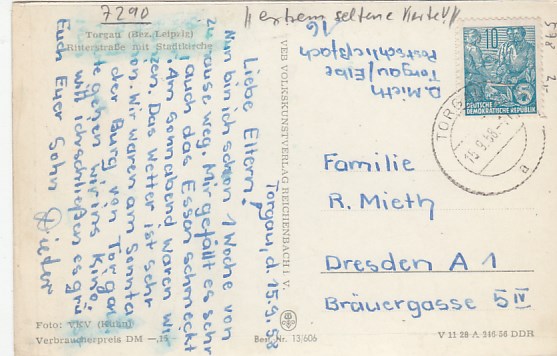 7290
!! extrem seltene Karte!!
Torgau (Bez. Leipzig)
Ritterstraße mit Stadtkirche
Torgau, d. 15.9.58
Liebe Eltern!
Nun bin ich schon 1 Woche von
zu Hause weg. Mir gefällt es sehr
auch das Essen schmeckt
Am Sonnabend waren wir
Das Wetter ist sehr
Wir waren am Sonnta
der Burg von Torgau.
gehen wir ins Kino.
will ich schließen es grü
Euch Euer Sohn Dieter
Foto: VKV (Kühn)
Verbraucherpreis DM —,15
VEB VOLKSKUNSTVERLAG REICHENBACH I. V.
Best. Nr. 13/606
D. Mieth
Torgau/Elbe
Postschließfach
16
10
DEUTSCHE
DEMOKRATISCHE REPUBLIK
TORG
15.9.58
a
Familie
R. Mieth
Dresden A 1
Bräuergasse 5 IV
V 11 28 A 246/56 DDR